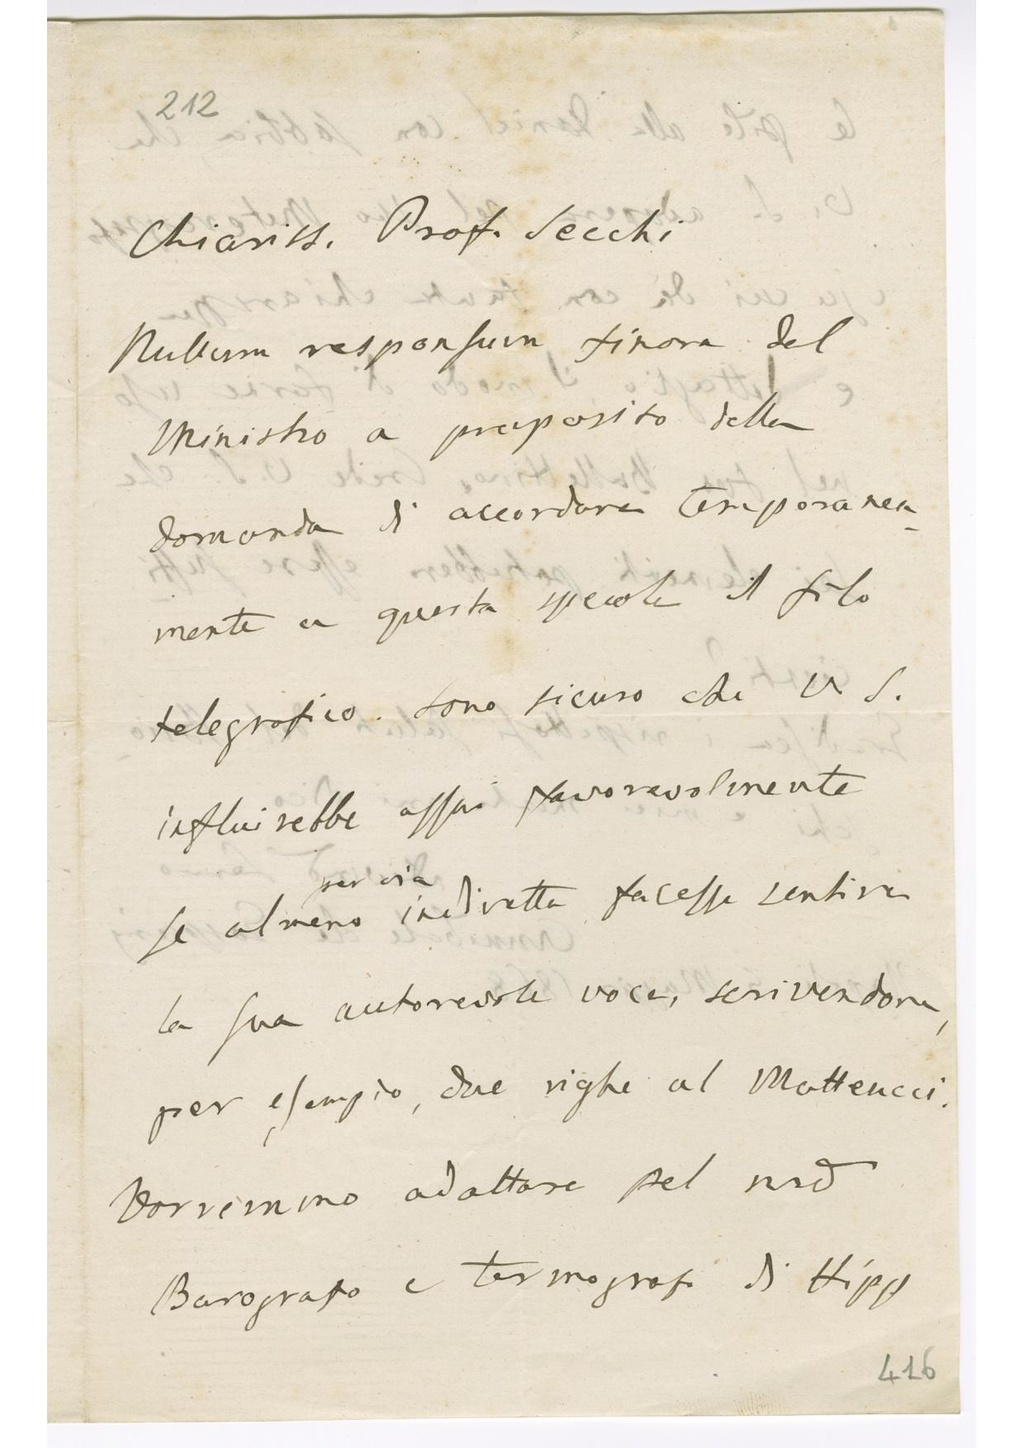 212
Chiariss. Prof. Secchi
Nullum responsum finora del
Ministro a proposito della
domanda di accordare temporanea-
mente a questa specola il filo
telegrafico. Sono sicuro che V. S.
influirebbe assai favorevolmente
per via
se almeno indiretta facesse sentire
la sua autorevole voce, scrivendone,
per esempio, due righe al Matteucci.
Vorremmo adattare pel nro
Barografo e termografo di Hipp
416